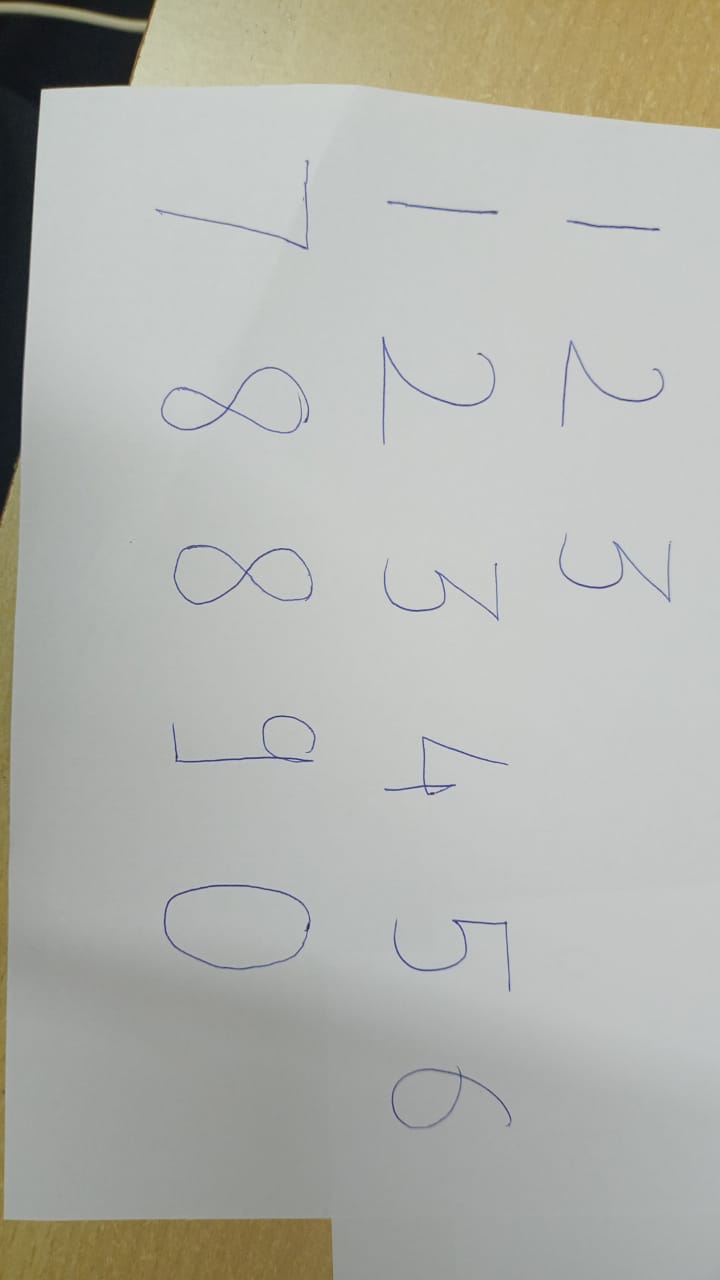 1 2 3
1 2 3 4 5 6
7 8 8 9 0